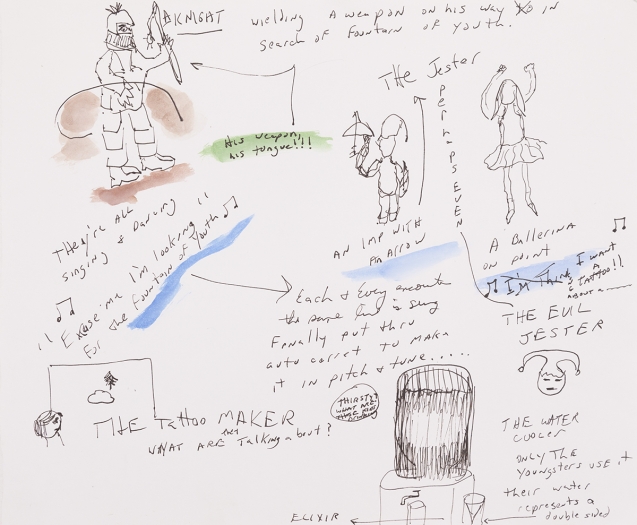 A KNIGHT wielding A weapon on his way to in
search of Fountain of Youth.
THE Jester
perhaps even
His weapon,
his tongue!!!
They're All
singing & Dancing
"Excuse me I'm looking "
For the Fountain of Youth
AN IMP WITH
AN ARROW
A Ballerina
on point
I'm Think I want
A
TATTOO!!
ABOUT A
Each & Every encounter
the same line is sung
Finally put thru
auto correct to make
it in pitch & tune.....
THE EUIL
JESTER
THE Tattoo MAKER
WHAT ARE they Talking about?
THIRSTY?
WHAT ARE
THOSE KIDS
DRINKING
THE WATER
COOLER
ONLY THE
Youngsters USE it
their water
represents a
double sided
ELIXIR